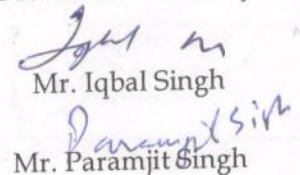 Mr. Iqbal Singh
Paramjit Singh
Mr. Paramjit Singh